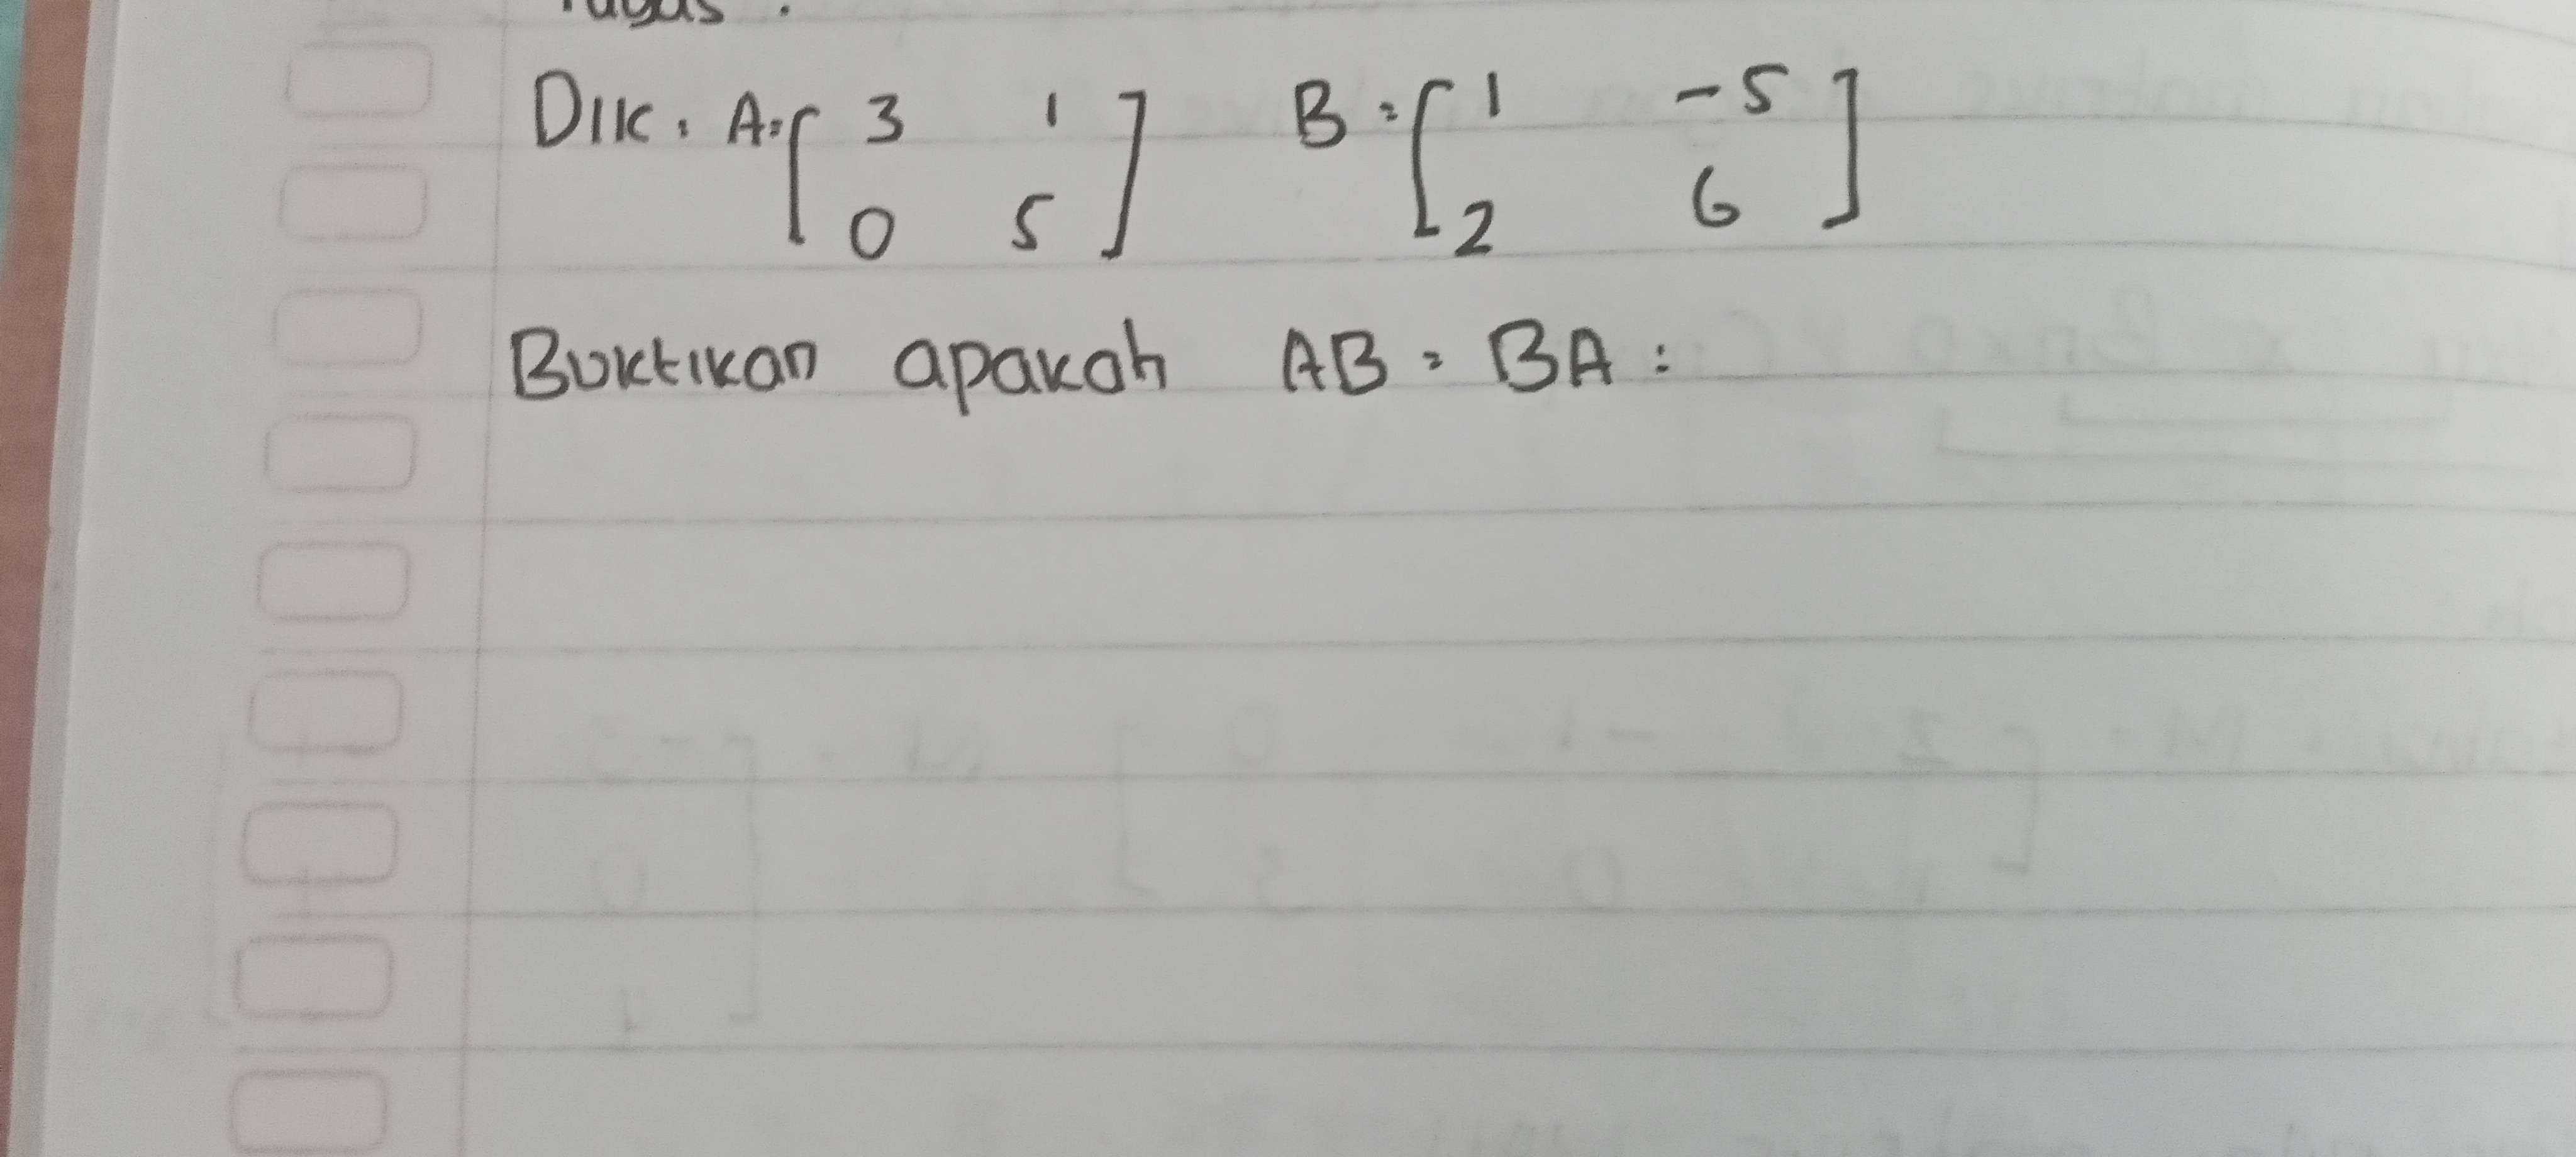 Tugas :
Dik : A = [ 3 1 ] B = [ 1 -5 ]
0 5 2 6
Buktikan apakah AB = BA :